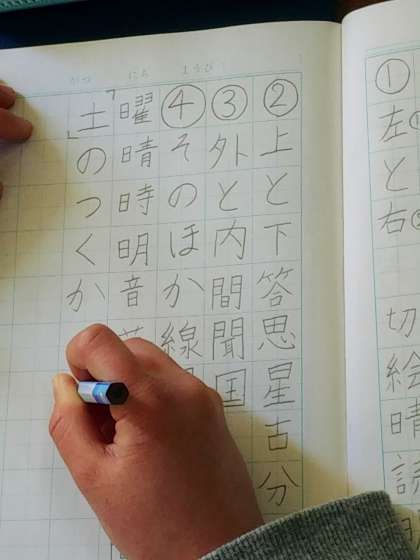 がつ にち ようび
①左と右 切絵晴読
②上と下答思星古分
③外と内間聞国
④そのほか線
曜晴時明音
「土」のつくか